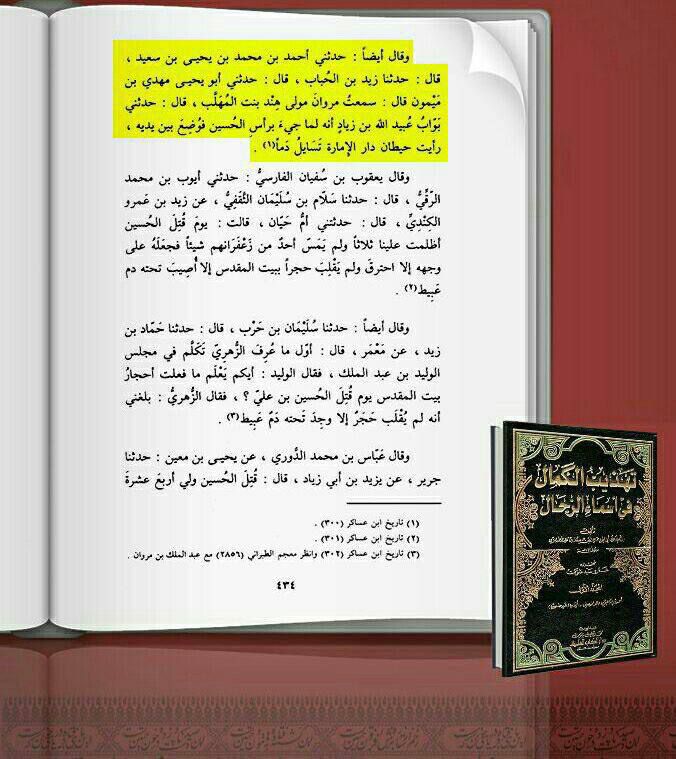 وقال أيضاً : حدثني أحمد بن محمد بن يحيـى بن سعيد ،
قال : حدثنا زيد بن الحُباب ، قال : حدثني أبو يحيـى مهدي بن
مَيْمون قال : سمعتُ مروانَ مولى هِنْد بنت المُهَلَّب ، قال : حدثني
بَوّابُ عُبيد الله بن زيادٍ أنه لما جيءَ برأسِ الحُسين فوُضِعَ بين يديه ،
رأيت حيطان دار الإمارة تَسَايلُ دَماً(١) .
وقال يعقوب بن سُفيان الفارسيُّ : حدثني أيوب بن محمد
الرَّقِّيُّ ، قال : حدثنا سَلّام بن سُلَيْمَان الثَّقَفِيُّ ، عن زيد بن عَمرو
الكِنْدِيِّ ، قال : حدثتني أمُّ حَيّان ، قالت : يومَ قُتِلَ الحُسين
أظلمت علينا ثلاثاً ولم يَمَسّ أحدٌ من زَعْفَرَانهم شيئاً فجعَلَهُ على
وجهه إلا احترقَ ولم يَقْلِبَ حجراً ببيت المقدس إلا أُصِيبَ تحته دم
عَبِيط(٢) .
وقال أيضاً : حدثنا سُلَيْمَان بن حَرْب ، قال : حدثنا حَمّاد بن
زيد ، عن مَعْمَر ، قال : أوّل ما عُرِفَ الزُّهريّ تَكَلَّم في مجلس
الوليد بن عبد الملك ، فقال الوليد : أيكم يَعْلَم ما فعلت أحجارُ
بيت المقدس يوم قُتِلَ الحُسين بن عليّ ؟ ، فقال الزُّهريُّ : بلغني
أنه لم يُقْلَب حَجَرٌ إلا وجِدَ تَحته دَمٌ عَبِيط(٣) .
وقال عَبّاس بن محمد الدُّوري ، عن يحيـى بن معين : حدثنا
جرير ، عن يزيد بن أبي زياد ، قال : قُتِلَ الحُسين ولي أربعَ عشرةَ
(١) تاريخ ابن عساكر (٣٠٠) .
(٢) تاريخ ابن عساكر (٣٠١) .
(٣) تاريخ ابن عساكر (٣٠٢) وانظر معجم الطبراني (٢٨٥٦) مع عبد الملك بن مروان .
٤٣٤
تهذيب الكمال
في أسماء الرجال